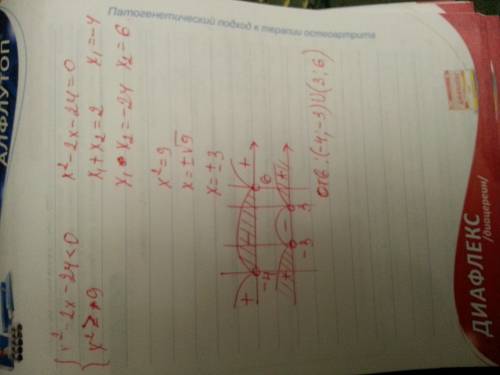 Патогенетический подход к терапии остеоартрита
АЛФЛУТОП
{x²-2x-24<0
{x²>9
x²-2x-24=0
x₁+x₂=2 x₁=-4
x₁•x₂=-24 x₂=6
x²=9
x=±√9
x=±3
+ - +
-4 6
+ - +
-3 3
отв.: (-4;-3)U(3;6)
ДИАФЛЕКС
/диацереин/